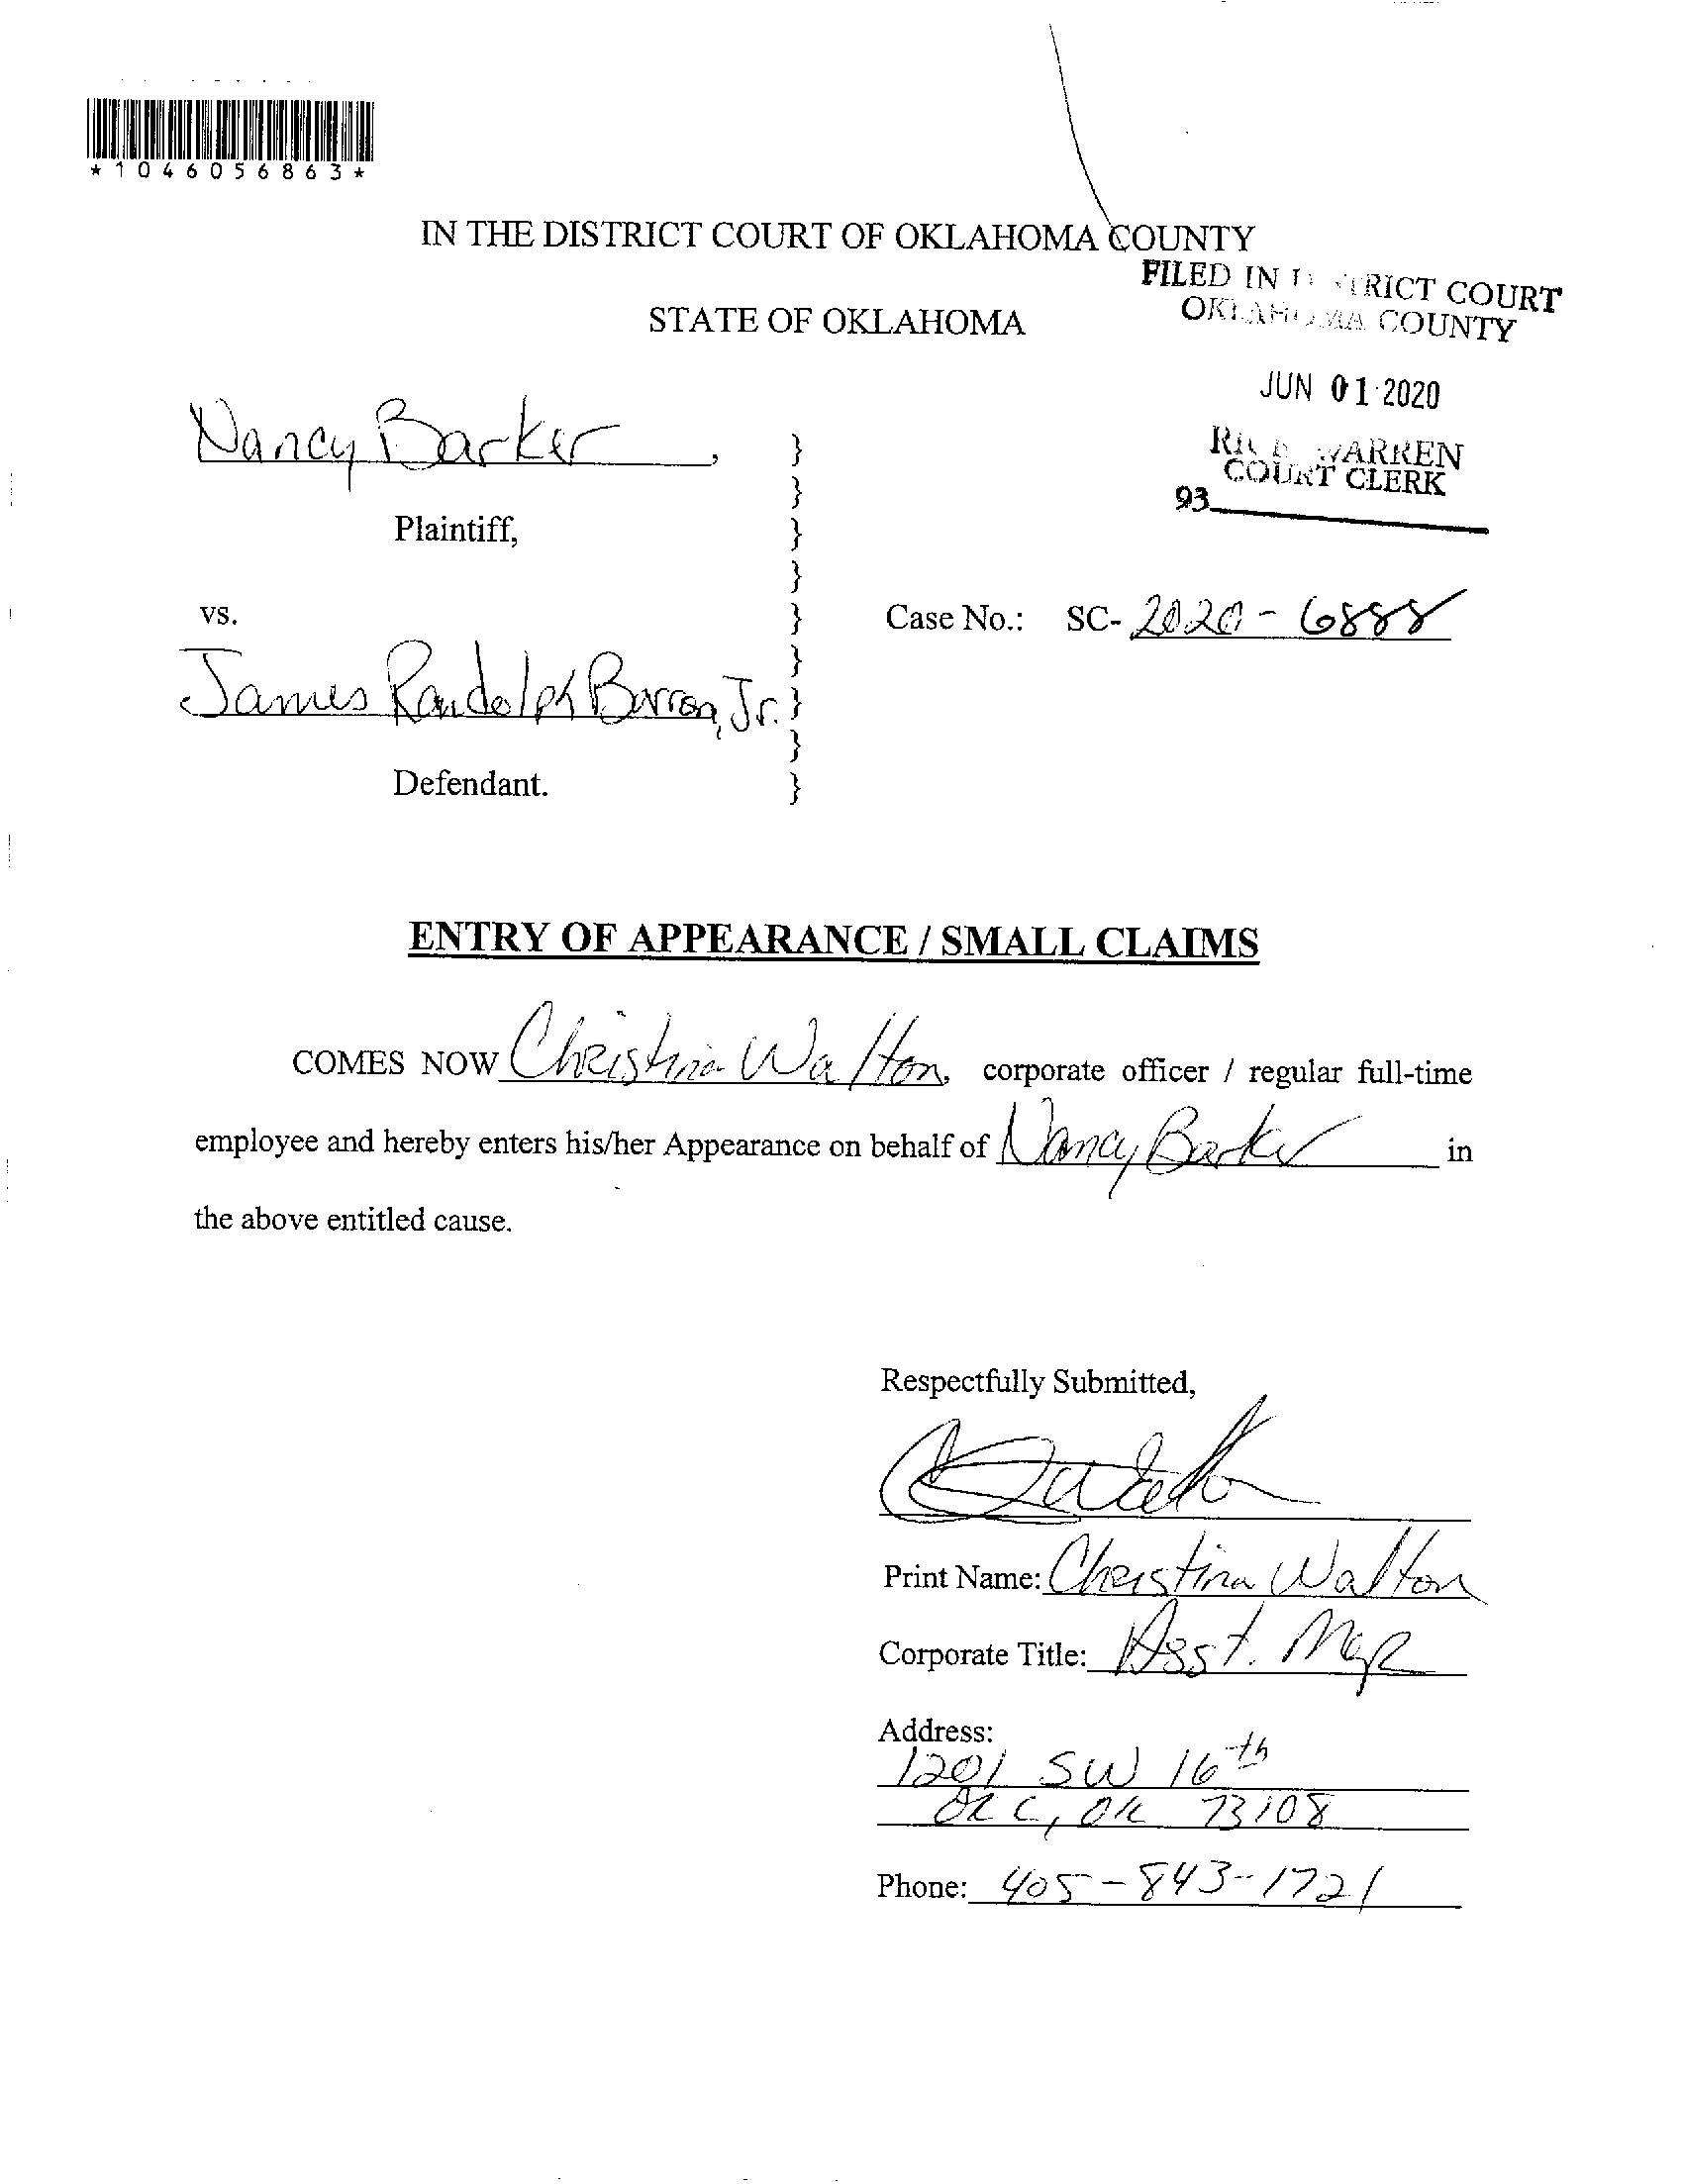 *1046056863*
IN THE DISTRICT COURT OF OKLAHOMA COUNTY
FILED IN DISTRICT COURT
OKLAHOMA COUNTY
STATE OF OKLAHOMA
JUN 01 2020
Nancy Barker, }
WARREN
COURT CLERK
}
93
Plaintiff, }
}
vs. } Case No.: SC- 2020 - 6888
}
James Randolph Barron, Jr. }
}
Defendant. }
ENTRY OF APPEARANCE / SMALL CLAIMS
COMES NOW Christina Walton, corporate officer / regular full-time
employee and hereby enters his/her Appearance on behalf of Nancy Barker in
the above entitled cause.
Respectfully Submitted,
Print Name: Christina Walton
Corporate Title: Asst. Mgr
Address:
1201 SW 16th
OKC, OK 73108
Phone: 405-843-1721